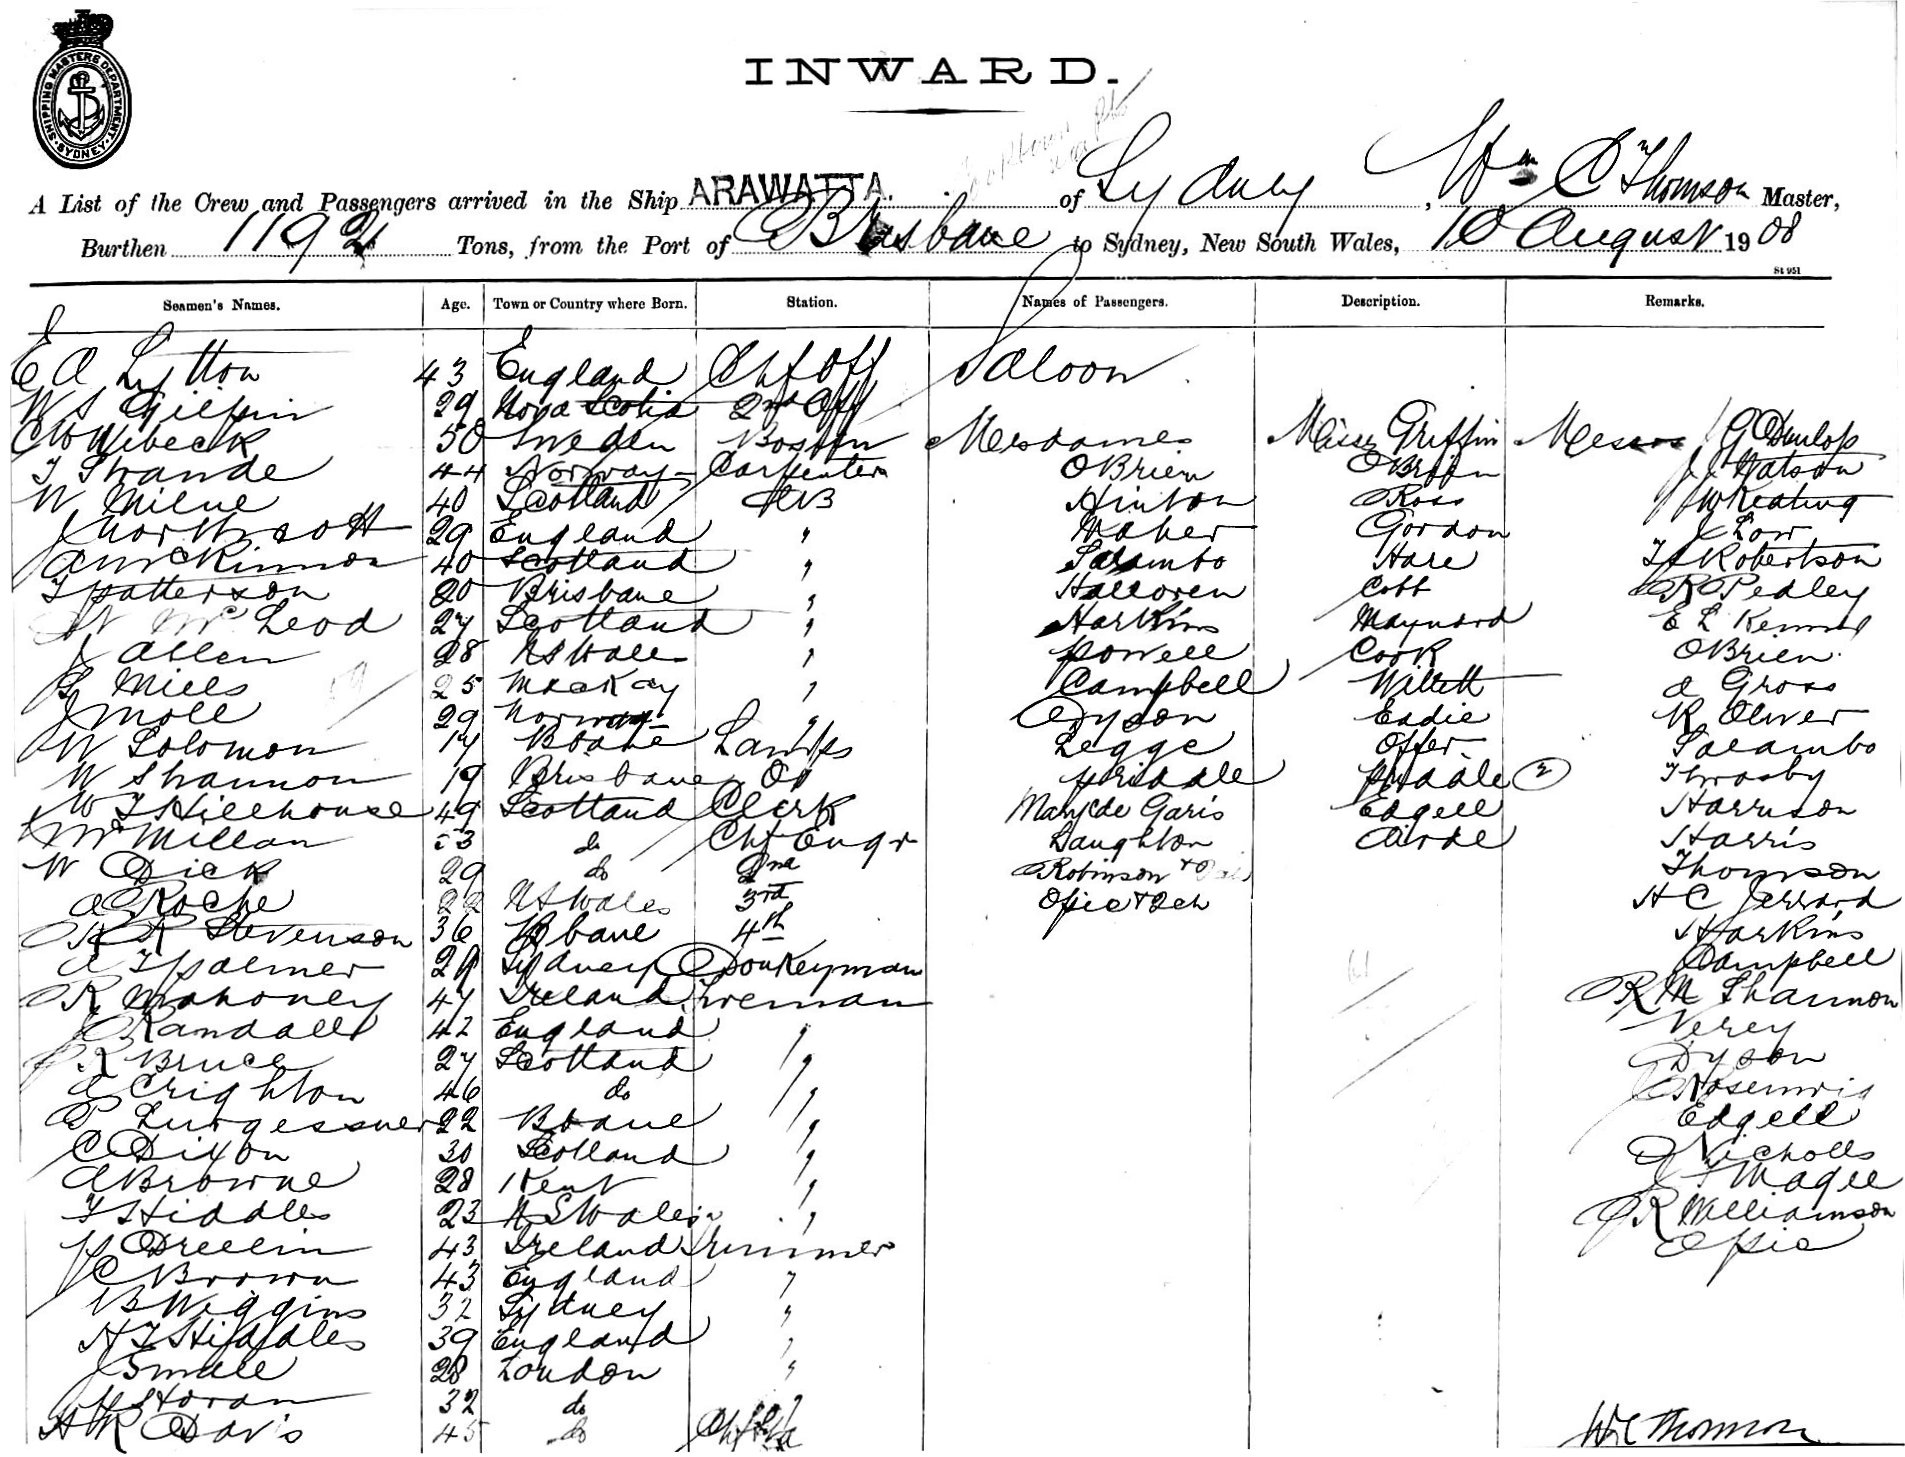 SHIPPING MASTERS DEPARTMENT SYDNEY
INWARD.
A List of the Crew and Passengers arrived in the Ship ARAWATTA. of Sydney, Wm C Thomson Master,
Burthen 1192 Tons, from the Port of Brisbane to Sydney, New South Wales, 10 August 1908
St 951
Seamen's Names. Age. Town or Country where Born. Station. Names of Passengers. Description. Remarks.
E A Lytton 43 England Chf Off Saloon
W S Gilpin 29 Nova Scotia 2nd Off
C W Wibeck 50 Sweden Bosen Mesdames Misses Griffin Messrs G Dunlop
T Strande 44 Norway Carpenter OBrien OBrien J Watson
W Milne 40 Scotland AB Hinton Ross W Keating
J Northcott 29 England " Maher Gordon J Low
A McKinnon 40 Scotland " Salambo Hare T J Robertson
T Patterson 20 Brisbane " Halloren Cobb R Pedley
N McLeod 27 Scotland " Harkins Maynard E L
J Allen 28 N S Wales " Powell Cook OBrien
S Mills 25 Mackay " Campbell Willett A Gross
J Moll 29 Norway " Dyson Eadie R Oliver
W Solomon 17 Bbane Lamps Legge Offer Salambo
W Shannon 19 Brisbane OS Priddle Priddle (2) Throsby
W T Hillhouse 49 Scotland Clerk Mary de Garis Edgell Harrison
McMillan 53 do Chf Engr Laughton Airde Harris
W Dick 29 do 2nd Robinson + Thomson
A Roche 22 N S Wales 3rd Opie + 2ch H C Jerrard
R R Stevenson 36 Bbane 4th Harkins
A T Palmer 29 Sydney Donkeyman Campbell
R Mahoney 47 Ireland Fireman R M Shannon
J Randall 42 England " Verey
J R Bruce 27 Scotland " Dyson
A Crighton 46 do "
P Lurgessner 22 Bbane " Edgell
C Dixon 30 Scotland " J Nicholls
A Browne 28 Kent " J T Magee
T Hiddles 23 N S Wales " J R Williamson
P Dreelin 43 Ireland Trimmer Opie
J C Brown 43 England "
B Wiggins 32 Sydney "
H T Hiddles 39 England "
J Smale 28 London "
Horan 32 do "
H R Davis 45 do Chf
W C Thomson